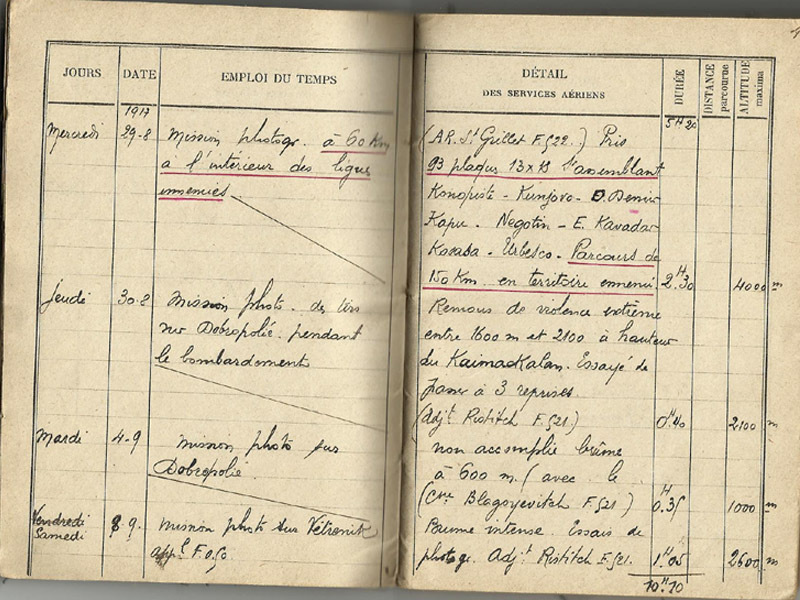 JOURS
DATE
EMPLOI DU TEMPS
1917
Mercredi 29-8 Mission photogr. à 60 Km
à l'intérieur des lignes
ennemies.
Jeudi 30.8 Mission photo. des tirs
sur Dobropolié. pendant
le bombardement
Mardi 4-9 Mission photo sur
Dobropolié.
Vendredi
Samedi 8 9. Mission photo sur Vétrenik
app^l F.050
DÉTAIL
DES SERVICES AÉRIENS
DURÉE
DISTANCE
parcourue
ALTITUDE
maxima
5^H 20
(AR. S^t Grillet F.522.) Pris
93 plaques 13x18 s'assemblant
Konopisté - Kunjovo - D. Demir
Kapu - Negotin - E. Kavadar
Kasaba - Urbesco - Parcours de
150 Km. en territoire ennemi. 2^H.30 4000 m
Remous de violence extrême
entre 1600 m et 2100 à hauteur
du Kaimackalan. Essayé de
passer à 3 reprises.
(Adj^t Ristitch F.521.) 0^H.40 2100 m
non accomplie brume
à 600 m. (avec le
(C^ne Blagoyevitch F.521) 0^H.35 1000 m
Brume intense. Essais de
photogr. Adj^t Ristitch F.521. 1^H.05 2600 m
10^H.10